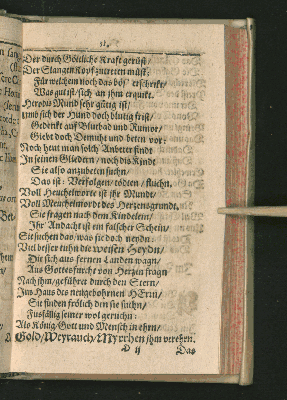 51.
Der durch Göttliche Kraft gerüst/
Der Slangen Kopf zutreten müst.
Für welchem noch das böß erschrikt/
Was gut ist/sich an ihm erquikt.
Herodis Mund sehr gütig ist/
und sich der Hund doch blutig frist/
Gedenkt auf Blutbad und Rumor/
Giebt doch Demuht und beten vor:
Noch heut man solch Anbeter findt
In seinen Gliedern/ noch die Kindt
Sie also anzubeten suchn/
Das ist: Verfolgen/tödten/fluchn.
Voll Heuchelworte ist ihr Mund/
Voll Meuchelmordt des Herzensgrundt.
Sie fragen nach dem Kindelein/
Ihr Andacht ist ein falscher Schein/
Sie suchen das/was sie doch neydn.
Viel besser tuhn die weisen Heydn/
Die sich aus fernen Landen wagn/
Aus Gottesfurcht von Herzen fragn
Nach ihm/geführet durch den Stern/
Ins Haus des neugebohrnen HErrn/
Sie funden frölich den sie suchn/
Fusfällig seiner wol geruchn:
Als König/Gott und Mensch in ehrn/
Gold/Weyrauch/Myrrhen ihm verehrn.
D ij Das